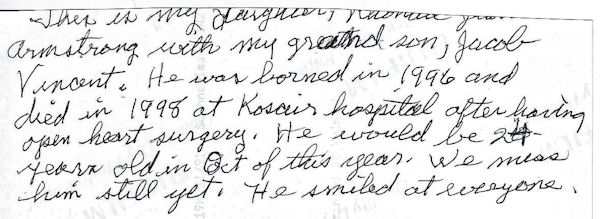 This is my daughter,
Armstrong with my grand son, Jacob
Vincent. He was borned in 1996 and
died in 1998 at Kosair hospital after having
open heart surgery. He would be 24
years old in Oct of this year. We miss
him still yet. He smiled at everyone.